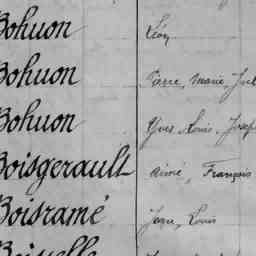 Bohuon Léon
Bohuon Pierre, Marie,
Bohuon Yves, Louis,
Boisgerault Aimé, François
Boisramé Louis